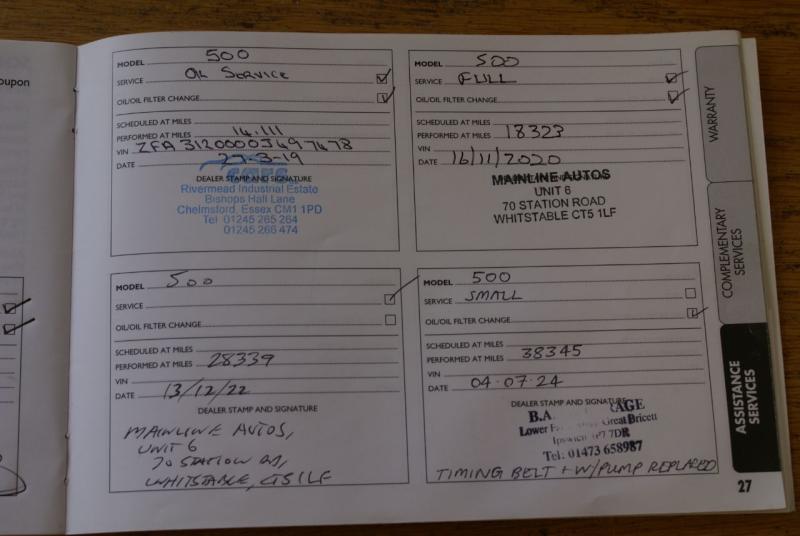 oupon
MODEL 500
SERVICE OIL SERVICE
OIL/OIL FILTER CHANGE
SCHEDULED AT MILES
PERFORMED AT MILES 14.111
VIN ZFA3120000J497478
DATE 27-3-19
DEALER STAMP AND SIGNATURE
Rivermead Industrial Estate
Bishops Hall Lane
Chelmsford, Essex CM1 1PD
Tel 01245 265 264
01245 266 474
MODEL 500
SERVICE FULL
OIL/OIL FILTER CHANGE
SCHEDULED AT MILES
PERFORMED AT MILES 18323
VIN
DATE 16/11/2020
MAINLINE AUTOS
UNIT 6
70 STATION ROAD
WHITSTABLE CT5 1LF
MODEL 500
SERVICE
OIL/OIL FILTER CHANGE
SCHEDULED AT MILES
PERFORMED AT MILES 28339
VIN
DATE 13/12/22
DEALER STAMP AND SIGNATURE
MAINLINE AUTOS,
UNIT 6
70 STATION RD,
WHITSTABLE, CT5 1LF
MODEL 500
SERVICE SMALL
OIL/OIL FILTER CHANGE
SCHEDULED AT MILES
PERFORMED AT MILES 38345
VIN
DATE 04.07.24
DEALER STAMP AND SIGNATURE
B.A.
Lower Great Bricett
Ipswich IP7 7DR
Tel: 01473 658987
TIMING BELT + W/PUMP REPLACED
WARRANTY
COMPLEMENTARY
SERVICES
ASSISTANCE
SERVICES
27